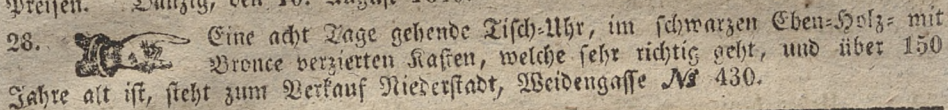 Preisen. Danzig, den 10. August
28. Eine acht Tage gehende Tisch-Uhr, im schwarzen Eben-Holz- mit
Bronce verzierten Kasten, welche sehr richtig geht, und über 150
Jahre alt ist, steht zum Verkauf Niederstadt, Weidengasse № 430.